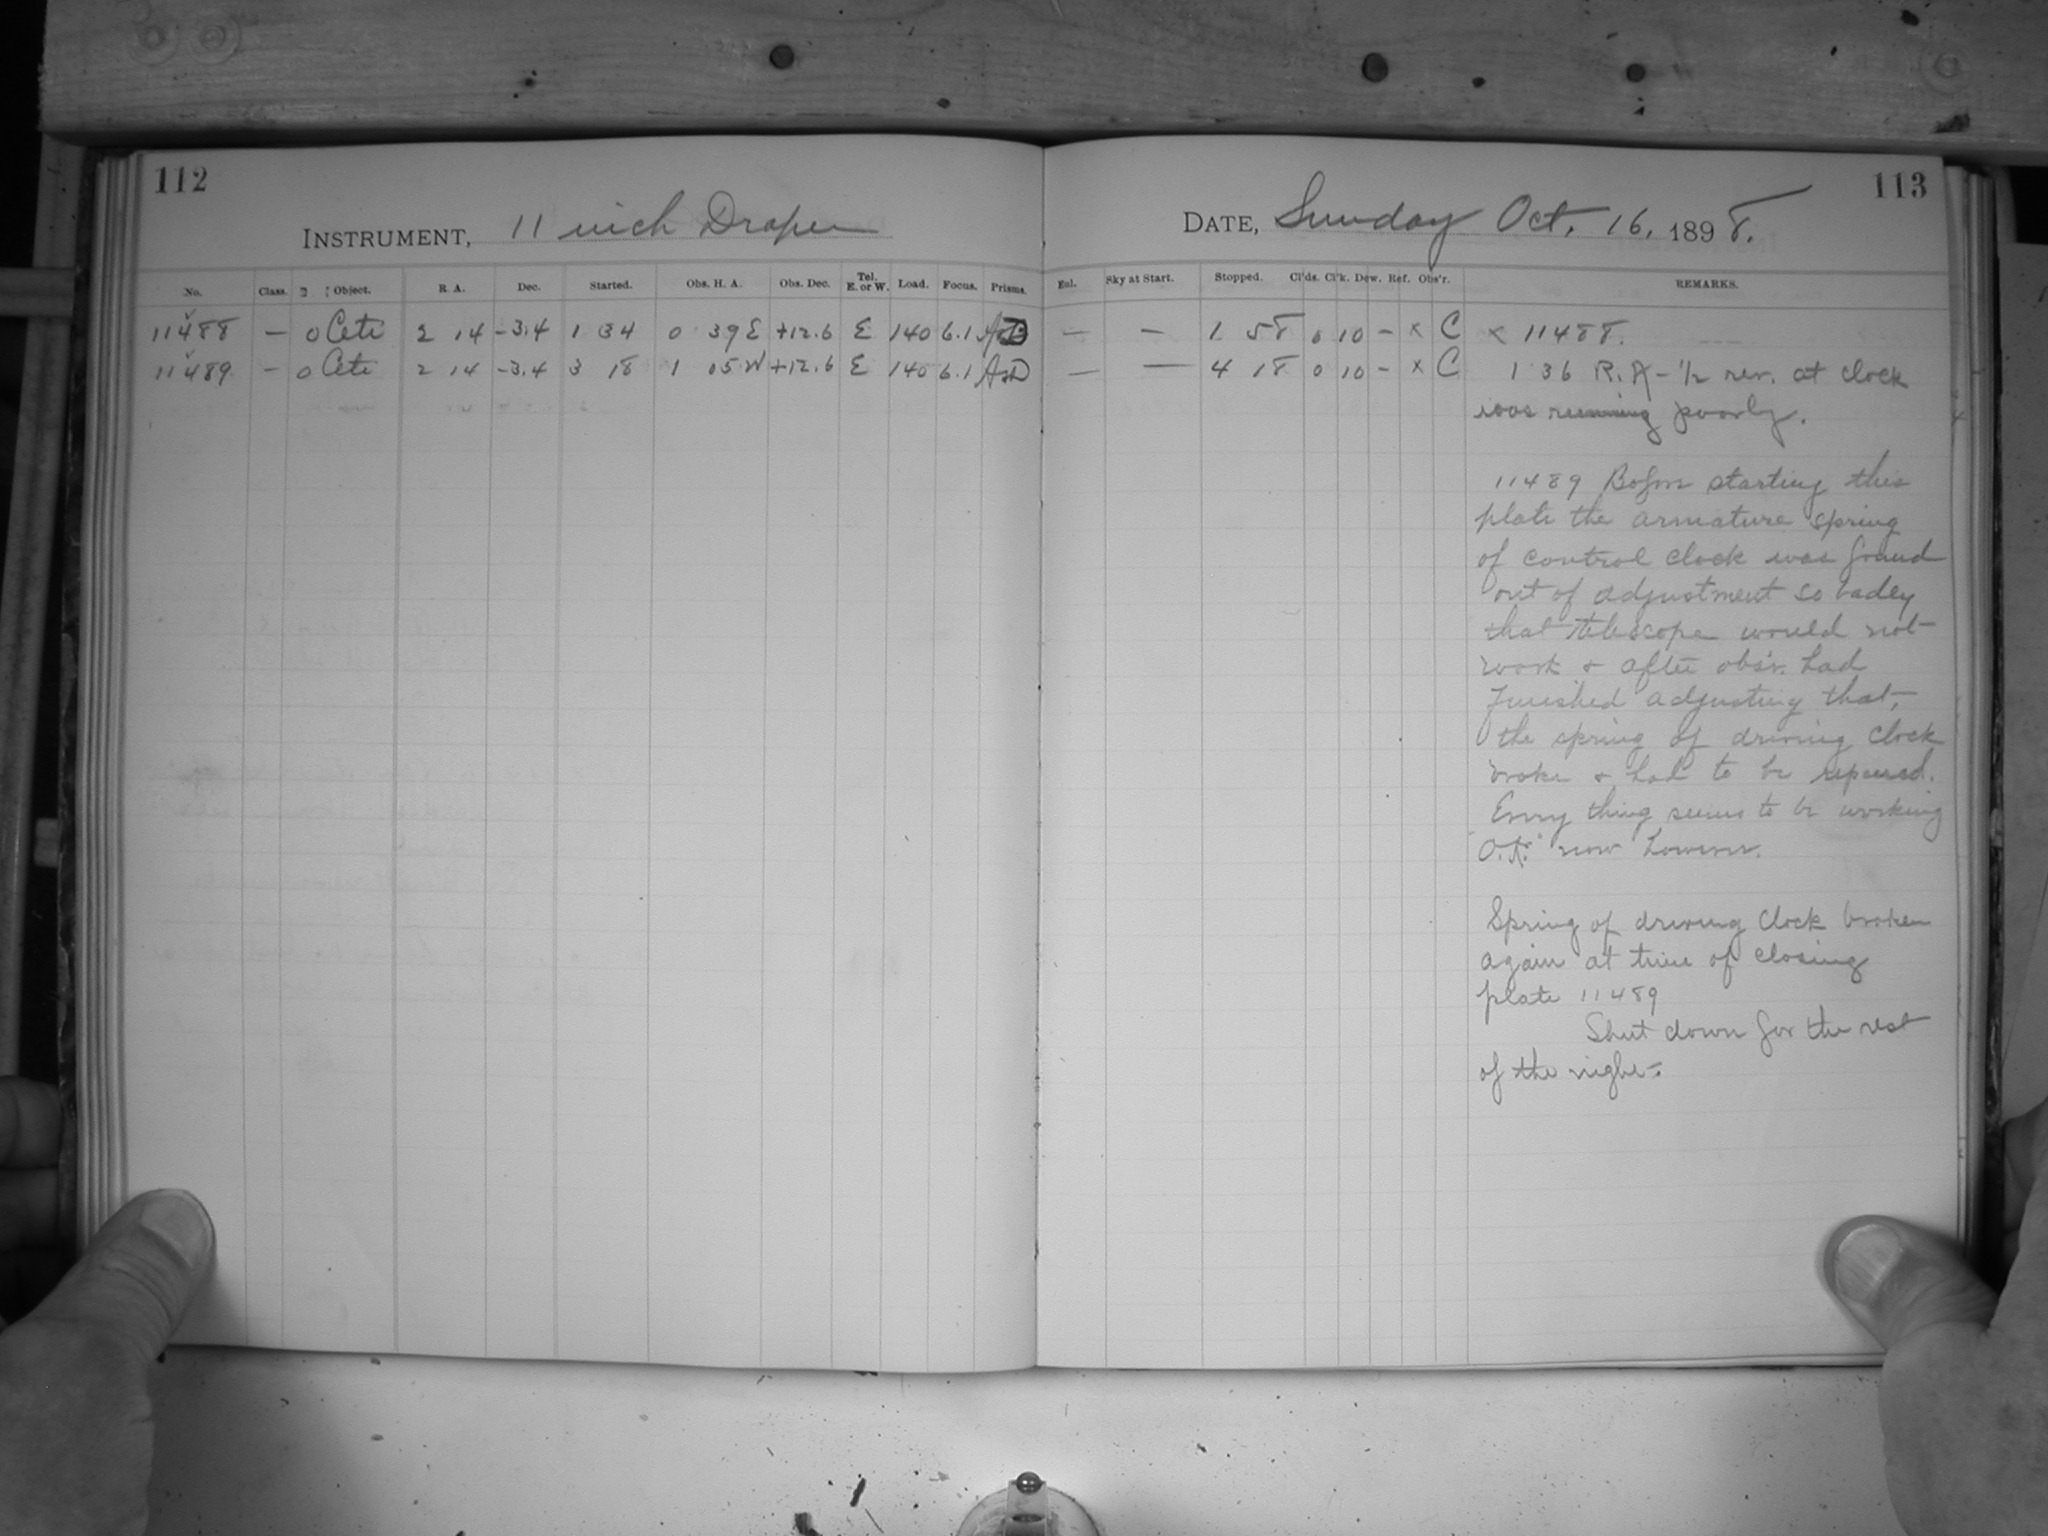 112
INSTRUMENT, 11 inch Draper
No. Class. Object. R. A. Dec. Started. Obs. H. A. Obs. Dec. Tel. E. or W. Load. Focus. Prisms.
11488 — o Ceti 2 14 -3.4 1 34 0 39 E +12.6 E 140 6.1
11489 — o Ceti 2 14 -3.4 3 18 1 05 W +12.6 E 140 6.1
113
DATE, Sunday Oct. 16, 1898.
Eul. Sky at Start. Stopped. Cl'ds. Cl'k. Dew. Ref. Obs'r. REMARKS.
— — 1 58 0 10 – x C x 11488.
— — 4 18 0 10 – x C 1 36 R.A – 1/2 rev. at clock
was running poorly.
11489 Before starting this
plate the armature spring
of control clock was found
out of adjustment so badly
that telescope would not
work + after obs'r. had
finished adjusting that,
the spring of driving clock
broke + had to be repaired.
Every thing seems to be working
"O.K." now however.
Spring of driving clock broken
again at time of closing
plate 11489
Shut down for the rest
of the night.